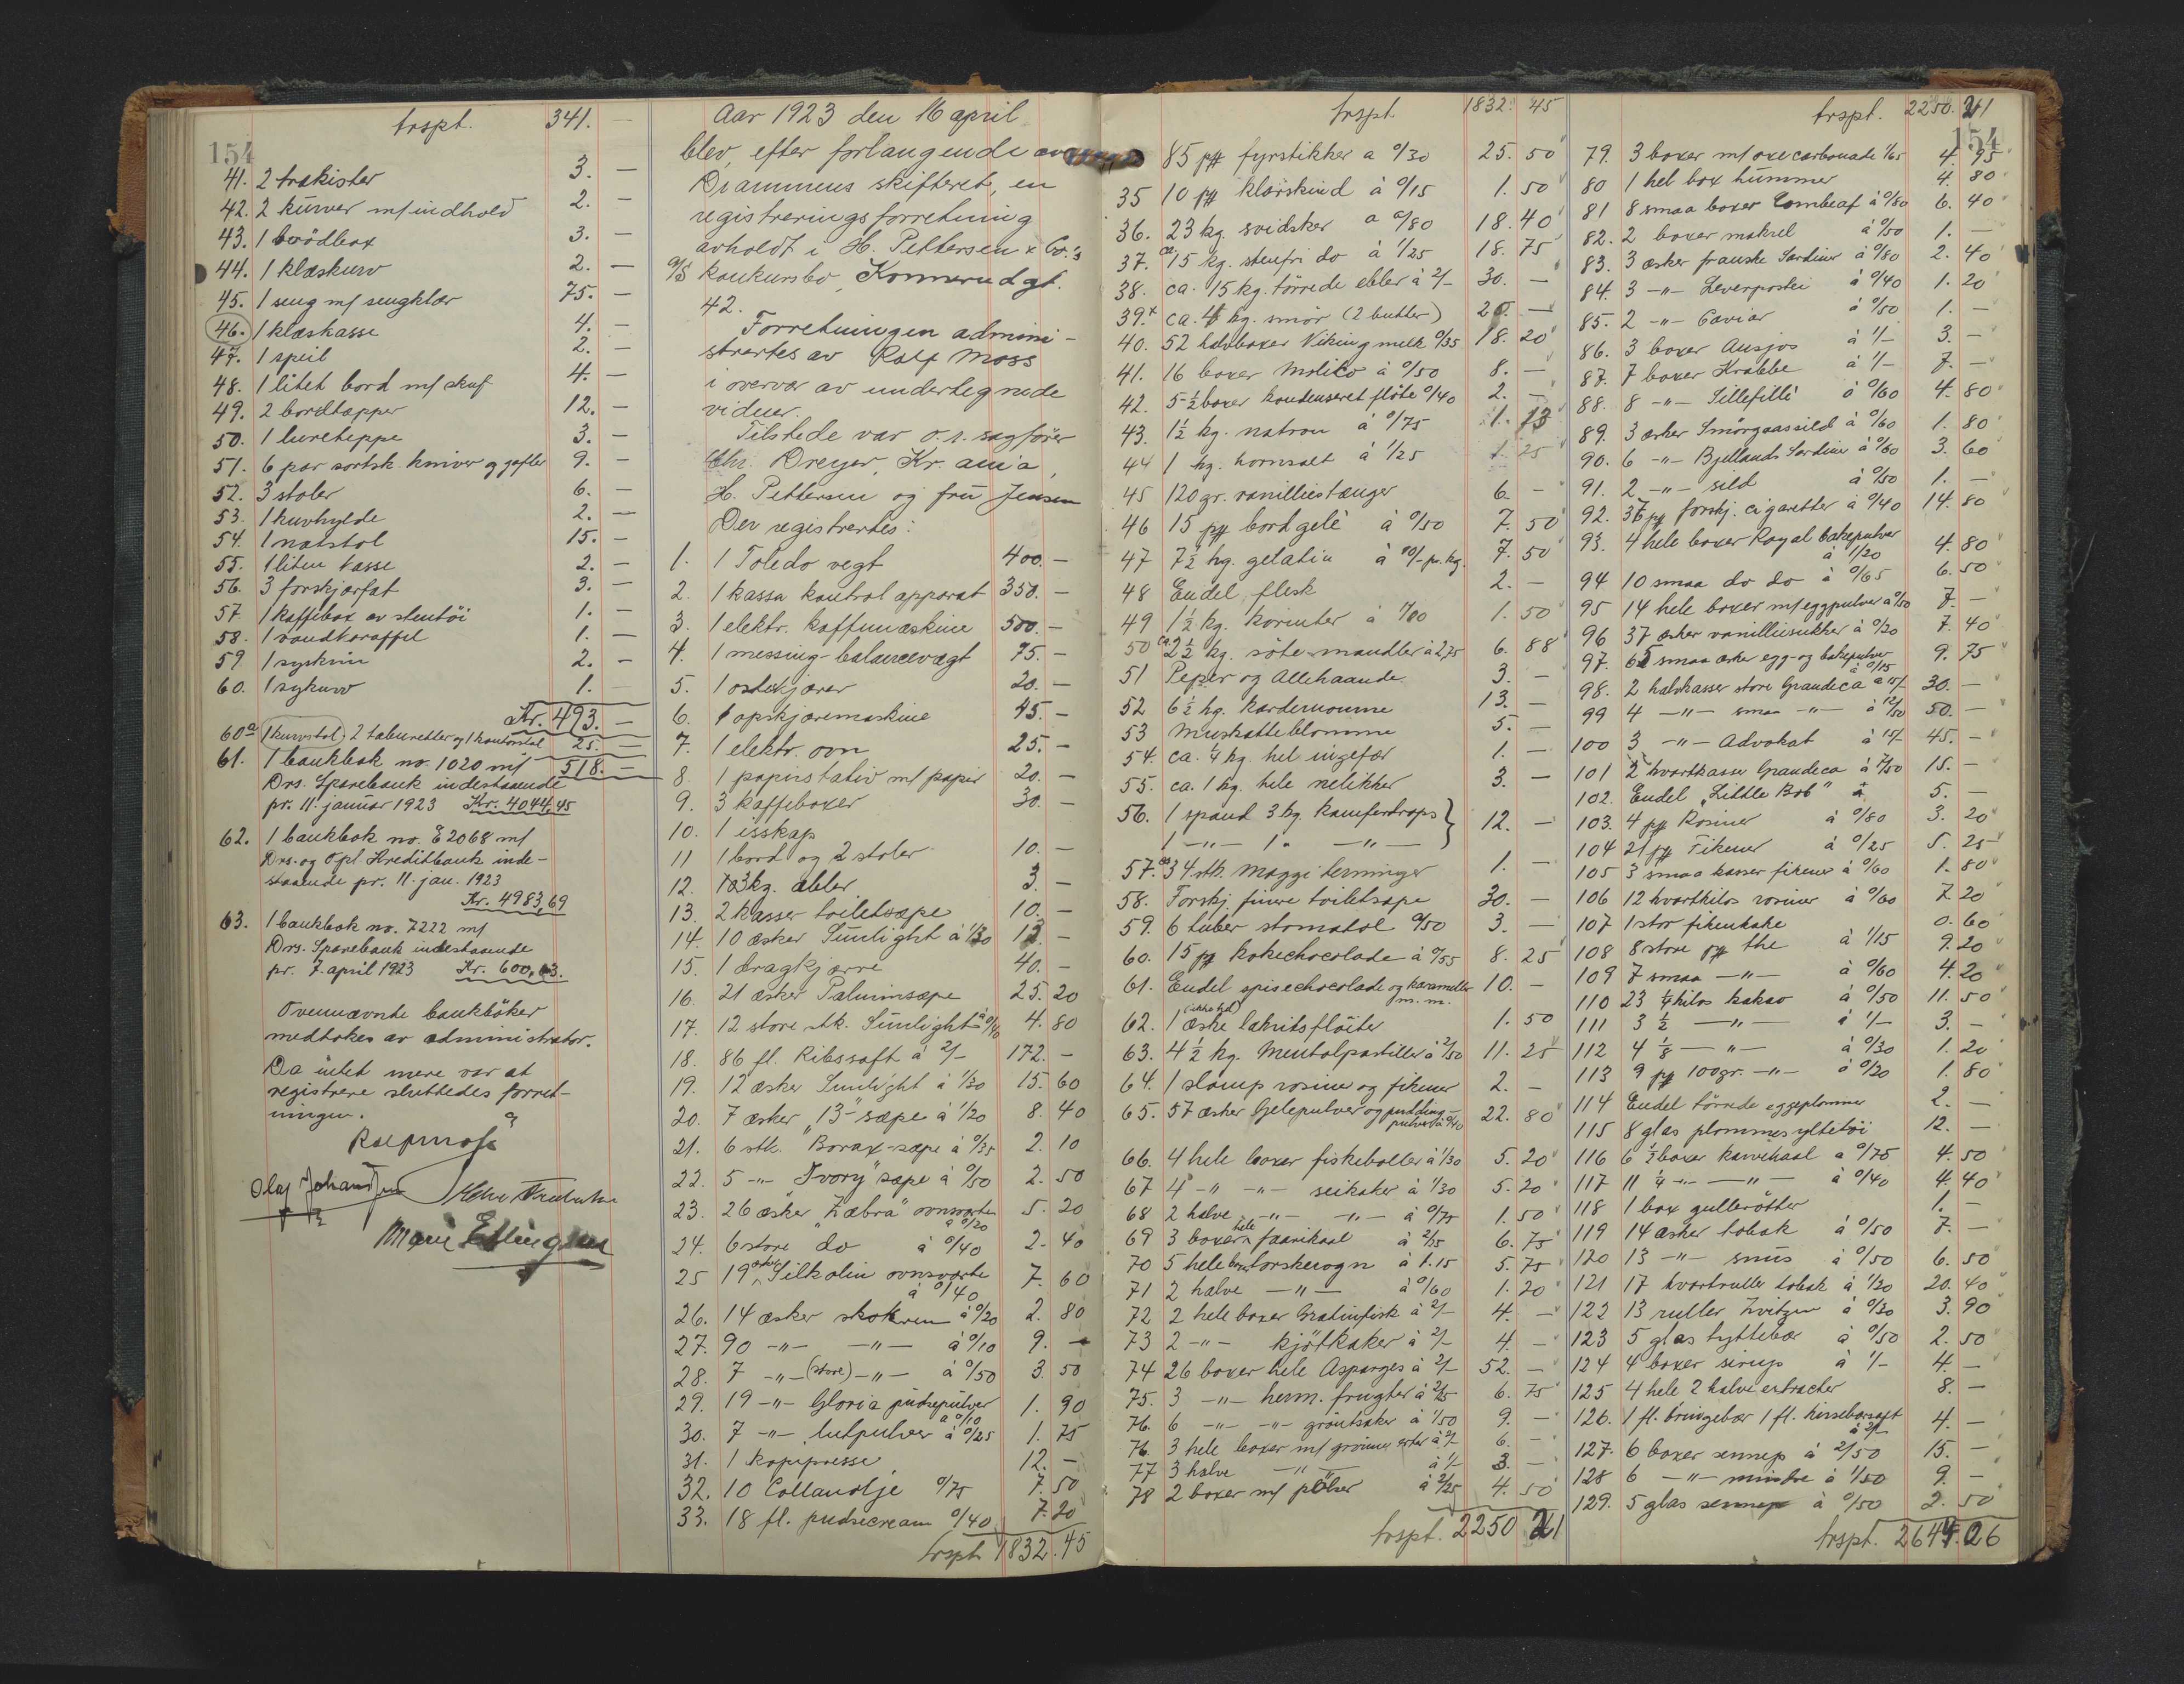 154
trspt. 341. —
41. 2 trækister 3. —
42. 2 kurver m/ indhold 2. —
43. 1 brödbox 3. —
44. 1 klæskurv 2. —
45. 1 seng m/ sengklær 75. —
46. 1 klæskasse 4. —
47. 1 speil 2. —
48. 1 litet bord m/ skuf 4. —
49. 2 bordtæpper 12. —
50. 1 lureteppe 3. —
51. 6 par sortsk. kniver og gafler 9. —
52. 3 stoler 6. —
53. 1 hvhylde 2. —
54. 1 natstol 15. —
55. 1 liten kasse 2. —
56. 3 forskjærfat 3. —
57. 1 kaffebox av stentöi 1. —
58. 1 vandkaraffel 1. —
59. 1 syskrin 2. —
60. 1 sykurv 1.
Kr. 493. —
60a 1 kurvstol, 2 taburetter og 1 kontorstol 25. —
518. —
61. 1 bankbok no. 1020 m/
Drs. Sparebank indestaaende
pr. 11. januar 1923 Kr. 4044,45
62. 1 bankbok no. E2068 m/
Drs. og Opl. Kreditbank inde-
staaende pr. 11. jan. 1923
Kr. 4983,69
63. 1 bankbok no. 7222 m/
Drs. Sparebank indestaaende
pr. 7. april 1923 Kr. 600,03.
Ovennævnte bankböker
medtokes av administrator.
Da intet mere var at
registrere sluttedes forret-
ningen.
Rolf Moss
Olaf Johansen
Marie Ellingsen
Aar 1923 den 16 april
blev, efter forlangende av
Drammens skifteret, en
registreringsforretning
avholdt i H. Pettersen & Co.'s
A/S konkursbo, Konnerudgt.
42.
Forretningen admini-
strertes av Rolf Moss
i overvær av undertegnede
vidner.
Tilstede var o.r. sagförer
Chr. Dreyer, Kr.ania,
H. Pettersen og fru Jensen
Der registrertes:
1. 1 Toledo vegt 400. —
2. 1 kassa kontrol apparat 350. —
3. 1 elektr. kaffemaskine 500. —
4. 1 messing-balancevægt 75. —
5. 1 osteskjærer 20. —
6. 1 opskjæremaskine 45. —
7. 1 elektr. ovn 25. —
8. 1 papirstativ m/ papir 20. —
9. 3 kaffeboxer 30. —
10. 1 isskap
11 1 bord og 2 stoler 10. —
12. 3 kg. æbler 3. —
13. 2 kasser toiletsæpe 10. —
14. 10 æsker Sunlight à 1/30 13 —
15. 1 dragkjærre 40. —
16. 21 æsker Palminsæpe 25. 20
17. 12 store stk. Sunlight à 0/40 4. 80
18. 86 fl. Ribssaft à 2/- 172. —
19. 12 æsker Sunlight à 1/30 15. 60
20. 7 æsker "13"-sæpe à 1/20 8. 40
21. 6 stk. Borax-sæpe à 0/35 2. 10
22. 5 -"- "Ivory" sæpe à 0/50 2. 50
23. 26 æsker "Zæbra" ovnsværte à 0/20 5. 20
24. 6 store do à 0/40 2. 40
25 19 æsker Silkolin ovnsværte à 0/40 7. 60
26. 14 æsker skokrem à 0/20 2. 80
27. 90 -"- -"- à 0/10 9. —
28. 7 -"- (store) -"- à 0/50 3. 50
29. 19 -"- Gloria pudsepulver à 0/10 1. 90
30. 7 -"- lutpulver à 0/25 1. 75
31. 1 kopipresse 12. —
32. 10 Collanolje 0/75 7. 50
33. 18 fl. pudsecream 0/40 7. 20
trspt. 1832. 45
trspt. 1832. 45
85 pk fyrstikker a 0/30 25. 50
35 10 pk klorskind à 0/15 1. 50
36. 23 kg. svidsker a 0/80 18. 40
37. ca 15 kg. stenfri do à 1/25 18. 75
38. ca. 15 kg. törrede ebler à 2/- 30. —
39. ca. 4 kg. smör (2 butler) 20. —
40. 52 halvboxer Viking melk 0/35 18. 20
41. 16 boxer Molico à 0/50 8. —
42. 5 1/2 boxer kondenseret flöte 0/40 2. —
43. 1 1/2 kg. natron à 0/75 1. 13
44 1 kg. hornsalt à 1/25 1. 25
45 120 gr. vanilliestænger 6. —
46 15 pk bordgelé à 0/50 7. 50
47 7 1/2 hg. gelatin à 10/- pr. kg. 7. 50
48 Endel flesk 2. —
49 1 1/2 kg. korinter à 1/00 1. 50
50 ca 2 1/2 kg. söte mandler à 2,75 6. 88
51 Peper og Allehaande 3. —
52 6 1/2 hg. kardemomme 13. —
53 Muskatteblomme 5. —
54. ca. 1/4 kg. hel ingefær 1. —
55. ca. 1 kg. hele nelikker 3. —
56. 1 spand 3 kg. kamferdrops
1 -"- 1 " -"- 12. —
57. ca 34 stk. maggi terninger 1. —
58. Forskj. finere toiletsæpe 30. —
59. 6 tuber stomatol 0/50 3. —
60. 15 pk kokechocolade à 0/55 8. 25
61. Endel spisechocolade og karameller m.m. 10. —
62. 1 (ikke hel) æske lakritsflöiter 1. 50
63. 4 1/2 kg. Mentolpastiller à 2/50 11. 25
64. 1 slump rosiner og fikener 2. —
65. 57 æsker Gelepulver og pudding-
pulver à 0/40 22. 80
66. 4 hele boxer fiskeboller à 1/30 5. 20
67 4 -"- -"- seikaker à 1/30 5. 20
68 2 halve -"- -"- à 0/75 1. 50
69 3 boxer hele faarikaal à 2/25 6. 75
70 5 hele box torskerogn à 1.15 5. 75
71 2 halve -"- à 0/60 1. 20
72 2 hele boxer Gratinfisk à 2/- 4. —
73 2 -"- kjötkaker à 2/- 4. —
74 26 boxer hele Asparges à 2/- 52. —
75. 3 -"- herm. frugter à 2/25 6. 75
76. 6 -"- -"- grönsaker à 1/50 9. —
76. 3 hele boxer m/ grönne erter à 2/- 6. —
77 3 halve -"- à 1/- 3. —
78 2 boxer m/ pölser à 2/25 4. 50
trspt. 2250 21
154
trspt. 2250. 21
79. 3 boxer m/ oxecarbonade 1/65 4. 95
80 1 hel box hummer 4. 80
81 8 smaa boxer Cornbeaf à 0/80 6. 40
82. 2 boxer makrel à 0/50 1. —
83. 3 æsker franske Sardiner à 0/80 2. 40
84. 3 -"- Leverpostei à 0/40 1. 20
85. 2 -"- Caviar à 0/50 1. —
86. 3 boxer Ansjos à 1/- 3. —
87. 7 boxer Krabbe à 1/- 7. —
88. 8 -"- Sillefilli à 0/60 4. 80
89. 3 æsker Smörgaassild à 0/60 1. 80
90. 6 -"- Bjellands Sardiner à 0/60 3. 60
91. 2 -"- sild à 0/50 1. —
92. 37 pk forskj. cigaretter à 0/40 14. 80
93. 4 hele boxer Royal bakepulver
à 1/20 4. 80
94 10 smaa do do à 0/65 6. 50
95 14 hele boxer m/ eggpulver à 0/50 7. —
96 37 æsker vanilliesukker à 0/20 7. 40
97. 65 smaa æsker egg- og bakepulver à 0/15 9. 75
98. 2 halvkasser store Grandeca à 15/- 30. —
99 4 -"- smaa -"- à 12/50 50. —
100 3 -"- Advokat à 15/- 45. —
101 2 kvartkasser Grandeca à 7/50 15. —
102. Endel "Little Bob" 5. —
103. 4 pk Rosiner à 0/80 3. 20
104 21 pk Fikener à 0/25 5. 25
105 3 smaa kasser fikener à 0/60 1. 80
106 12 kvartkilos rosiner à 0/60 7. 20
107 1 stor fikenkake 0. 60
108 8 store pk the à 1/15 9. 20
109 7 smaa -"- à 0/60 4. 20
110 23 1/4 kilos kakao à 0/50 11. 50
111 3 1/2 -"- à 1/- 3. —
112 4 1/8 -"- à 0/30 1. 20
113 9 pk 100gr. -"- à 0/20 1. 80
114 Endel törrede eggeplommer 2. —
115 8 glas plommesyltetöi 12. —
116 6 1/2 boxer karvekaal a 0/75 4. 50
117 11 1/4 -"- -"- à 0/40 4. 40
118 1 box gullerötter 1. —
119 14 æsker tobak à 0/50 7. —
120 13 -"- snus à 0/50 6. 50
121 17 kvartruller tobak à 1/20 20. 40
122 13 ruller à 0/30 3. 90
123 5 glas tyttebær à 0/50 2. 50
124 4 boxer sirup à 1/- 4. —
125 4 hele 2 halve extracter 8. —
126. 1 fl. bringebær 1 fl. kirsebærsaft à 2/- 4. —
127. 6 boxer sennep à 2/50 15. —
128 6 -"- mindre à 1/50 9. —
129. 5 glas sennep à 0/50 2. 50
trspt. 2644. 26